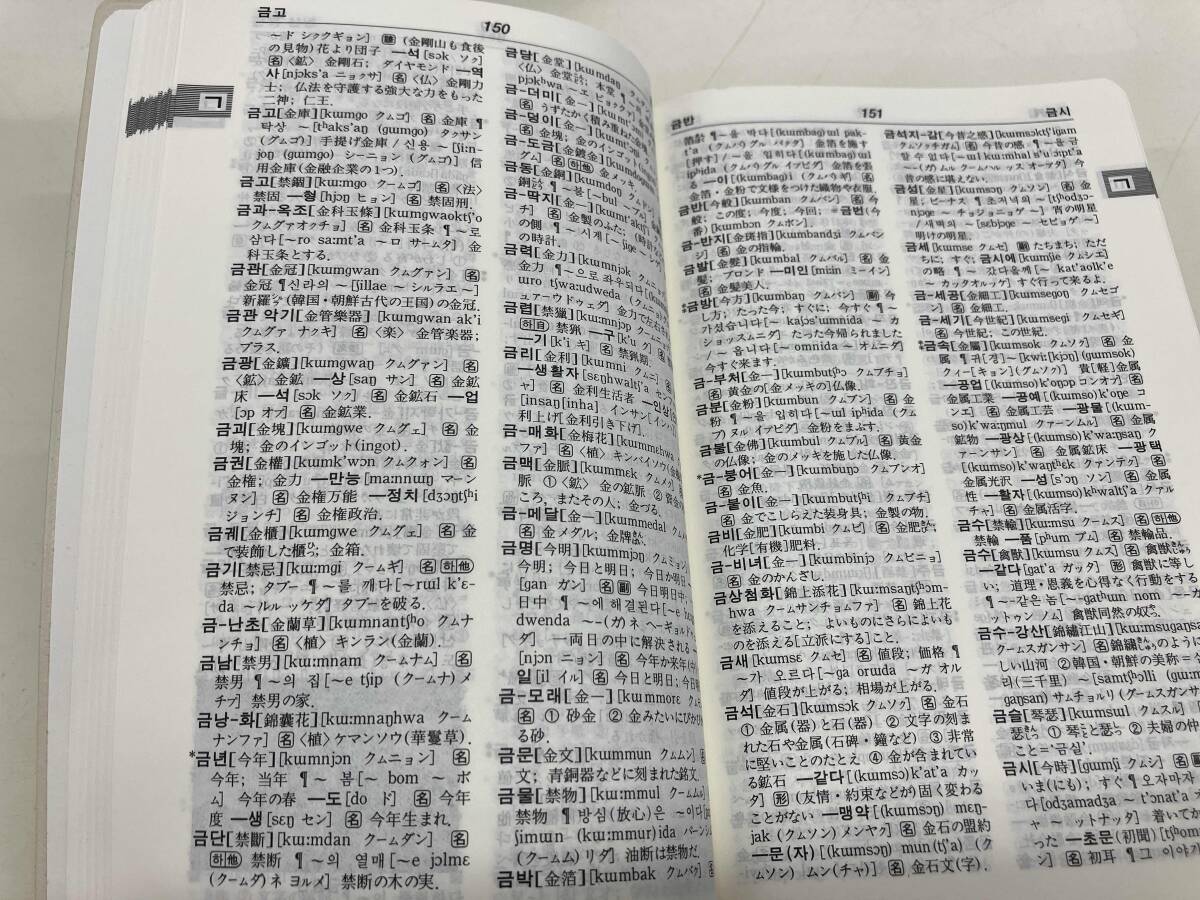 금고
150
~ド シㇰクギョン] 聽 (金剛山も食後
の見物)花より団子 ―석[sɔk ソㇰ]
名〈鉱〉金剛石; ダイヤモンド ―역
사[njɔks'a ニョㇰサ] 名〈仏〉金剛力
士; 仏法を守護する強大な力をもった
二神; 仁王.
금고[金庫][kɯmgo クㇺゴ] 名 金庫 ¶
탁상 ~[tʰaks'aŋ (gɯmgo) タㇰサン
(グㇺゴ)] 手提げ金庫 / 신용 ~[ʃi:n-
joŋ (gɯmgo) シーニョン (グㇺゴ)] 信
用金庫(金融企業の1つ).
금고[禁錮][kɯ:mgo クーㇺゴ] 名〈法〉
禁固 ―형[hjɔŋ ヒョン] 名 禁固刑.
금과-옥조[金科玉條][kɯmgwaoktʃ'o
クㇺグァオㇰチョ] 名 金科玉条 ¶ ~로
삼다[~ro sa:mt'a ~ロ サーㇺタ] 金
科玉条とする.
금관[金冠][kɯmgwan クㇺグァン] 名
金冠 ¶신라의 ~[ʃillae ~ シㇽラエ ~]
新羅(韓国・朝鮮古代の王国)の金冠.
금관 악기[金管樂器][kɯmgwan ak'i
クㇺグァン アㇰキ] 名〈楽〉金管楽器;
ブラス.
금광[金鑛][kɯmgwaŋ クㇺグァン] 名
〈鉱〉金鉱 ―상[saŋ サン] 名 金鉱
床 ―석[sɔk ソㇰ] 名 金鉱石 ―업
[ɔp オㇷ゚] 名 金鉱業.
금괴[金塊][kɯmgwe クㇺグェ] 名 金
塊; 金のインゴット(ingot).
금권[金權][kɯmk'wɔn クㇺクォン] 名
金権; 金力 ―만능[ma:nnɯŋ マーン
ヌン] 名 金権万能 ―정치[dʒɔŋtʃʰi
ジョンチ] 名 金権政治.
금궤[金櫃][kɯmgwe クㇺグェ] 名 金
で装飾した櫃; 金箱.
금기[禁忌][kɯ:mgi クーㇺギ] 名 하他
禁忌; タブー ¶ ~를 깨다[~rɯl k'ɛ-
da ~ルㇽ ッケダ] タブーを破る.
금-난초[金蘭草][kɯmnantʃʰo クㇺナ
ンチョ] 名〈植〉キンラン(金蘭).
금남[禁男][kɯ:mnam クーㇺナㇺ] 名
禁男 ¶ ~의 집[~e tʃip (クーㇺナ)メ
チㇷ゚] 禁男の家.
금낭-화[錦囊花][kɯ:mnaŋhwa クーㇺ
ナンファ] 名〈植〉ケマンソウ(華鬘草).
*금년[今年][kɯmnjɔn クㇺニョン] 名
今年; 当年 ¶ ~ 봄[~ bom ~ ボ
ㇺ] 今年の春 ―도[do ド] 名 今年
度 ―생[sɛŋ セン] 名 今年生まれ.
금단[禁斷][kɯ:mdan クーㇺダン] 名
하他 禁断 ¶ ~의 열매[~e jɔlmɛ
(クーㇺダ)ネ ヨㇽメ] 禁断の木の実.
금당[金堂][kɯmdaŋ
〈仏〉金堂; 本堂 ¶
금-더미[金―]
名 うずたかく積み重ねた
금-덩이[金―]
名 金塊; 金のインゴ
금-도금[金鍍金]
グㇺ] 名 하他 金メッキ.
금동[金銅][kɯmdoŋ
금-딱지[金―]
名 金製のふた; (時計
の側 ¶ ~ 시계[~ ʃige
の時計.
금력[金力][kɯmnjɔk
金力 ¶ ~으로 좌우되다
ɯro tʃwa:udweda
ュァーウドゥェダ] 金力で左右さ
금렵[禁獵][kɯ:mnjɔp
하自 禁猟 ―구[k'u グ]
―기[k'i キ] 名 禁猟期.
금리[金利][kɯmni クㇺニ]
―생활자[sɛŋhwaltʃ'a セ
名 金利生活者 ―인상
[insaŋ[inha] インサン[イン
利上げ[金利引き下げ].
금-매화[金梅花][kɯmmɛhwa
ファ] 名〈植〉キンバイソウ(金
금맥[金脈][kɯmmɛk クㇺメ
脈 ①〈鉱〉金の鉱脈 ② 資金の
ころ. またその人; 金づる.
금-메달[金―][kɯmmedal クㇺ
名 金メダル; 金牌.
금명[今明][kɯmmjɔŋ クㇺミョン
今明; 今日と明日; 今日か明日
[gan ガン] 名 副 今日明日中
日中 ¶ ~에 해결된다[~e h
dwenda ~-(ガ)ネ ヘーギョㇽド
ダ] 一両日の中に解決される
[njɔn ニョン] 名 今年か来年
일[il イㇽ] 名 今日と明日; 今日
금-모래[金―][kɯmmorɛ クㇺモ
名 ① 砂金 ② 金みたいにぴかぴか
る砂.
금문[金文][kɯmmun クㇺムン] 名
文; 青銅器などに刻まれた銘文.
금물[禁物][kɯ:mmul クーㇺム
禁物 ¶ 방심(放心)은 ~이다[pa
ʃimɯn (kɯ:mmur)ida パーンシ
(クーㇺム)リダ] 油断は禁物だ.
금박[金箔][kɯmbak クㇺバㇰ] 名
금반
151
금시
箔 ¶ ~을 박다[(kɯmbag)ɯl pak-
t'a (クㇺバ)グㇽ パㇰタ] 金箔を施す
[押す] / ~을 입히다[(kɯmbag)ɯl
ipʰida (クㇺバ)グㇽ イㇷ゚ピダ] 金箔を張
る ―이[(kɯmbag)i (クㇺバ)ギ] 名
金箔・金粉で文様をつけた織物や衣服.
금반[今般][kɯmban クㇺバン] 名 今
般; この度; 今度; 今回; =금번(今
番)[kɯmbɔn クㇺボン].
금-반지[金斑指][kɯmbandʒi クㇺバン
ジ] 名 金の指輪.
금발[金髮][kɯmbal クㇺバㇽ] 名 金
髪; ブロンド ―미인[mi:in ミーイン]
名 金髪美人.
*금방[今方][kɯmbaŋ クㇺバン] 副 今
し方; たった今; すぐに; 今すぐ ¶ ~
가셨습니다[~ kaʃɔs'ɯmnida ~ カ
ショッスㇺニダ] たった今帰られました
/ ~ 옵니다[~ omnida ~ オㇺニダ]
今すぐ来ます.
금-부처[金―][kɯmbutʃʰɔ クㇺブチョ]
名 黄金の[金メッキの]仏像.
금분[金粉][kɯmbun クㇺブン] 名 金
粉 ¶ ~을 입히다[~ɯl ipʰida (クㇺ
ブ)ヌㇽ イㇷ゚ピダ] 金粉をまぶす.
금불[金佛][kɯmbul クㇺブㇽ] 名 黄金
の仏像; 金のメッキを施した仏像.
*금-붕어[金―][kɯmbuŋɔ クㇺブンオ]
名 金魚.
금-붙이[金―][kɯmbutʃʰi クㇺブチ]
名 金でこしらえた装身具; 金製の物.
금비[金肥][kɯmbi クㇺビ] 名 金肥;
化学[有機]肥料.
금-비녀[金―][kɯmbinjɔ クㇺビニョ]
名 金のかんざし.
금상첨화[錦上添花][kɯ:msaŋtʃʰɔm-
hwa クーㇺサンチョㇺファ] 名 錦上花
を添えること; よいものにさらによいも
のを添える[立派にする]こと.
금새[kɯmsɛ クㇺセ] 名 値段; 価格 ¶
~가 오르다[~ga orɯda ~ガ オル
ダ] 値段が上がる; 相場が上がる.
금석[金石][kɯmsɔk クㇺソㇰ] 名 金石
① 金属(器)と石(器) ② 文字の刻ま
れた石や金属(石碑・鐘など) ③ 非常
に堅いことのたとえ ④ 金が含まれてい
る鉱石 ―같다[(kɯmsɔ)k'at'a カッ
タ] 形 (友情・約束などが)固く変わる
ことがない ―맹약[(kɯmsɔŋ) mɛŋ-
jak (クㇺソン) メンヤㇰ] 名 金石の盟約
―문(자)[(kɯmsɔŋ) mun(tʃ'a) (ク
ㇺソン) ムン(チャ)] 名 金石文(字).
금석지-감[今昔之感][kɯmsɔktʃ'igam
クㇺソㇰチガㇺ] 名 今昔の感 ¶ ~을 금
할 수 없다
昔の感に堪えない.
금성[金星][kɯmsɔŋ クㇺソン] 名 金
星; ビーナス ¶ 초저녁의 ~[tʃʰodʒɔ-
njɔge ~ チョジョニョゲ ~] 宵の明星
/ 새벽의 ~[sɛbjɔge ~ セビョゲ ~]
明けの明星.
금세[kɯmse クㇺセ] 副 たちまち; ただ
ちに; すぐ; 금시에[kɯmʃie クㇺシエ]
の略 ¶ ~ 갔다올께[~ kat'aolk'e
~ カッタオㇽッケ] すぐ行って来るよ.
금-세공[金細工][kɯmsegoŋ クㇺセゴ
ン] 名 金細工.
금-세기[今世紀][kɯmsegi クㇺセギ]
名 今世紀; この世紀.
*금속[金屬][kɯmsok クㇺソㇰ] 名 金
属 ¶귀(경) ~[kwi:(kjɔŋ) (gɯmsok)
クィー[キョン] (グㇺソㇰ)] 貴[軽]金属
―공업[(kɯmso)k'oŋɔp コンオㇷ゚] 名
金属工業 ―공예[(kɯmso)k'oŋe コ
ンエ] 名 金属工芸 ―광물[(kɯm-
so)k'waŋmul クァーンムㇽ] 名 金属
鉱物 ―광상[(kɯmso)k'waŋsaŋ ク
ァーンサン] 名 金属鉱床 ―광택
[(kɯmso)k'waŋtʰɛk クァンテㇰ] 名
金属光沢 ―성[s'ɔŋ ソン] 名 金属
性 ―활자[(kɯmso)kʰwaltʃ'a クァㇽ
チャ] 名 金属活字.
금수[禁輸][kɯ:msu クーㇺス] 名 하他
禁輸 ―품[pʰum プㇺ] 名 禁輸品.
금수[禽獸][kɯmsu クㇺス] 名 禽獣
―같다[gat'a ガッタ] 形 禽獣に等し
い; 道理・恩義を心得なく行動をする
¶ ~-같은 놈[~-gatʰɯn nom ~-ガ
ットゥン ノㇺ] 禽獣同然の奴.
금수-강산[錦繡江山][kɯ:msugaŋsan
クーㇺスガンサン] 名 錦繡のように
しい山河 ② 韓国・朝鮮の美称=
리(三千里) ~[samtʃʰɔlli (gɯ:msu-
gaŋsan) サㇺチョㇽリ (グーㇺスガンサ
금슬[琴瑟][kɯmsɯl クㇺスㇽ] 名
瑟 ① 琴と瑟 ② 夫婦の仲
こと=금실.
금시[今時][kɯmʃi クㇺシ] 名
いま(にも); すぐ ¶ 오자마자
다[odʒamadʒa ~ t'ɔnat'a オ
ャ ~ ットナッタ] 着いてか
―초문(初聞)[tʃʰom
ン] 名 初耳 ¶ 그 이야기
ㄱ
ㄱ